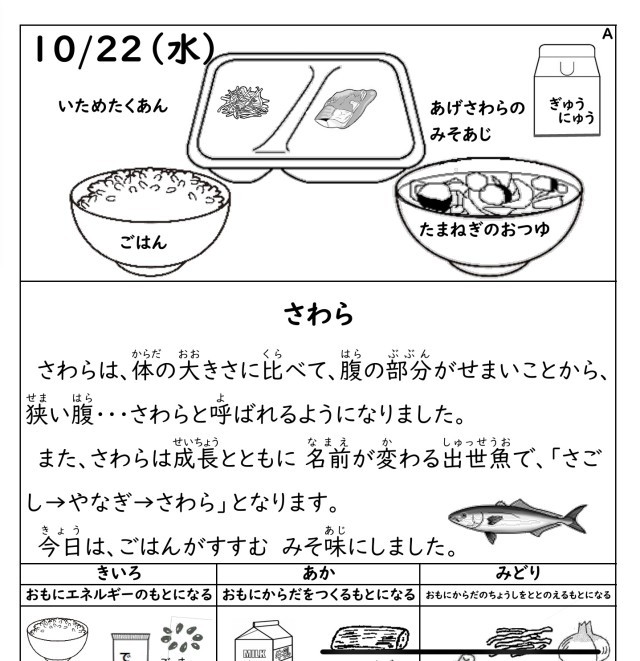 A
10/22(水)
いためたくあん
あげさわらの
みそあじ
ぎゅう
にゅう
ごはん
たまねぎのおつゆ
さわら
からだ おお くら はら ぶぶん
さわらは、体の大きさに比べて、腹の部分がせまいことから、
せま はら よ
狭い腹・・・さわらと呼ばれるようになりました。
せいちょう なまえ か しゅっせうお
また、さわらは成長とともに 名前が変わる出世魚で、「さご
し→やなぎ→さわら」となります。
きょう あじ
今日は、ごはんがすすむ みそ味にしました。
きいろ あか みどり
おもにエネルギーのもとになる おもにからだをつくるもとになる おもにからだのちょうしをととのえるもとになる
で
MILK